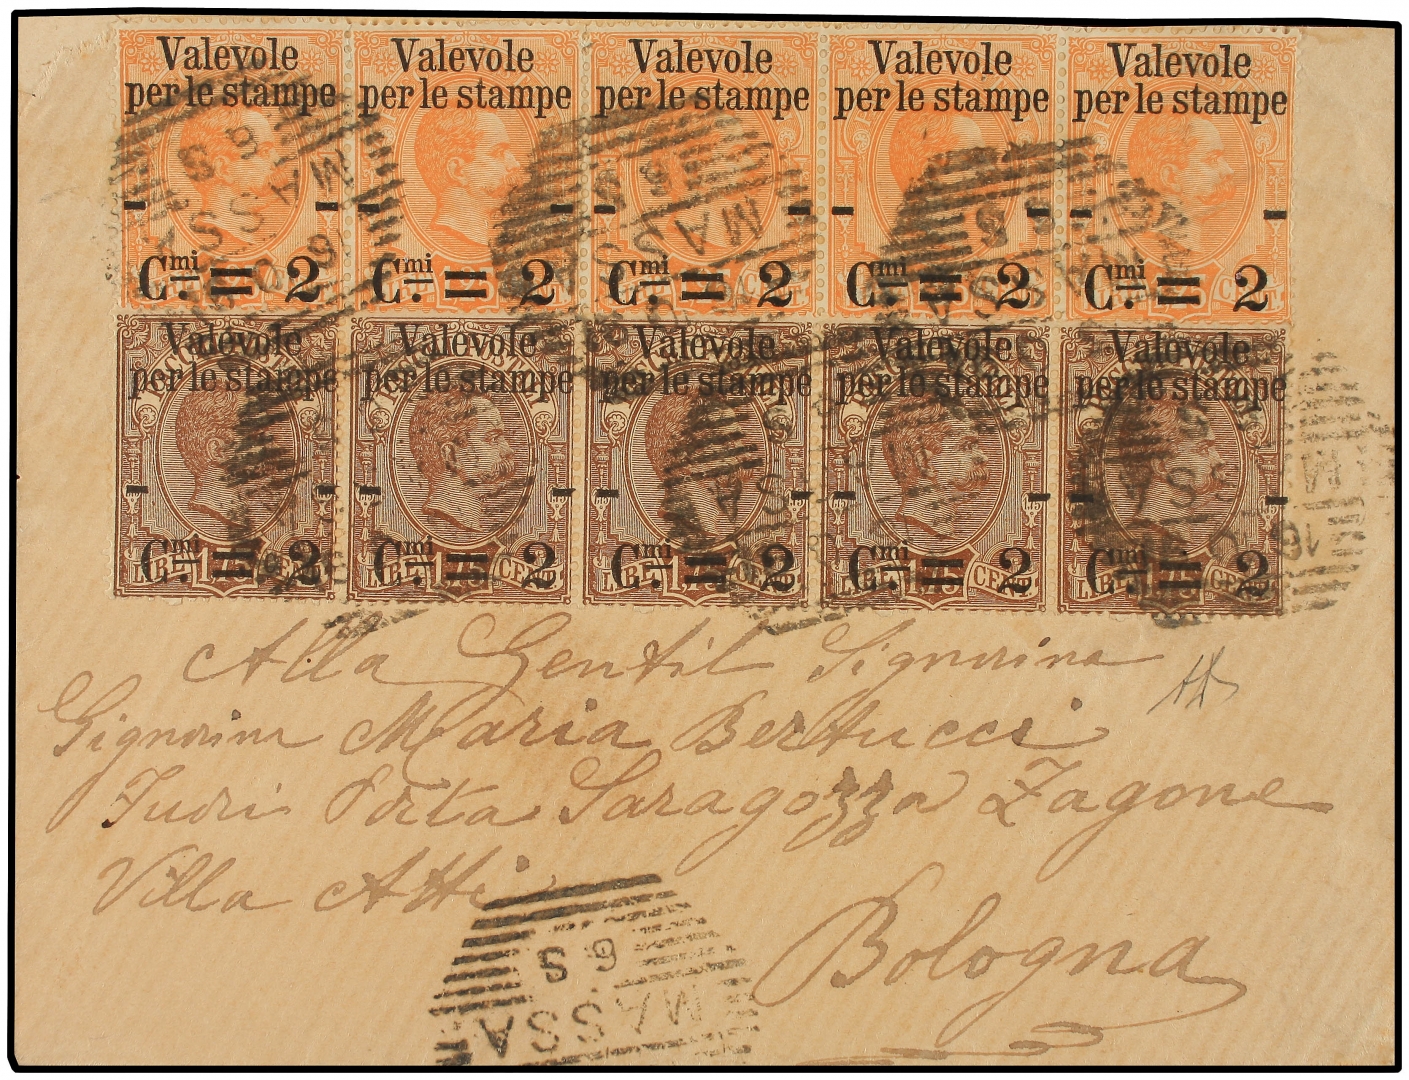 Valevole Valevole Valevole Valevole Valevole
per le stampe per le stampe per le stampe per le stampe per le stampe
Cmi. = 2 Cmi. = 2 Cmi. = 2 Cmi. = 2 Cmi. = 2
Valevole Valevole Valevole Valevole Valevole
per le stampe per le stampe per le stampe per le stampe per le stampe
Cmi. = 2 Cmi. = 2 Cmi. = 2 Cmi. = 2 Cmi. = 2
Alla Gentil Signorina
Signorina Maria Bertucci
Fuori Porta Saragozza Zagone
Villa Atti
Bologna
MASSA